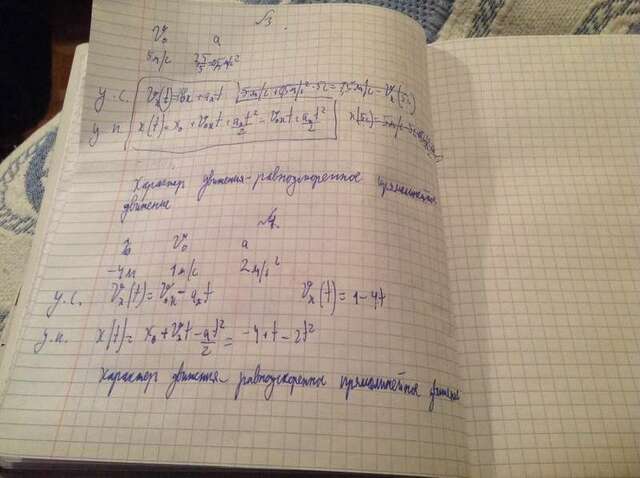 №3.
V₀ a
5 м/с 2,5/5=0,5 м/с²
у.с. Vₓ(t)=V₀ₓ+aₓt
у.п. x(t)=x₀+V₀ₓt+aₓt²/2=V₀ₓt+aₓt²/2
Характер движения-равноускоренное прямолинейное
движение
№4.
x₀ V₀ a
-4м 1м/с 2м/с²
у.с. Vₓ(t)=V₀ₓ-aₓt Vₓ(t)=1-4t
у.п. x(t)=x₀+Vₓt-at²/2=-4+t-2t²
Характер движения равноускоренное прямолинейное движение